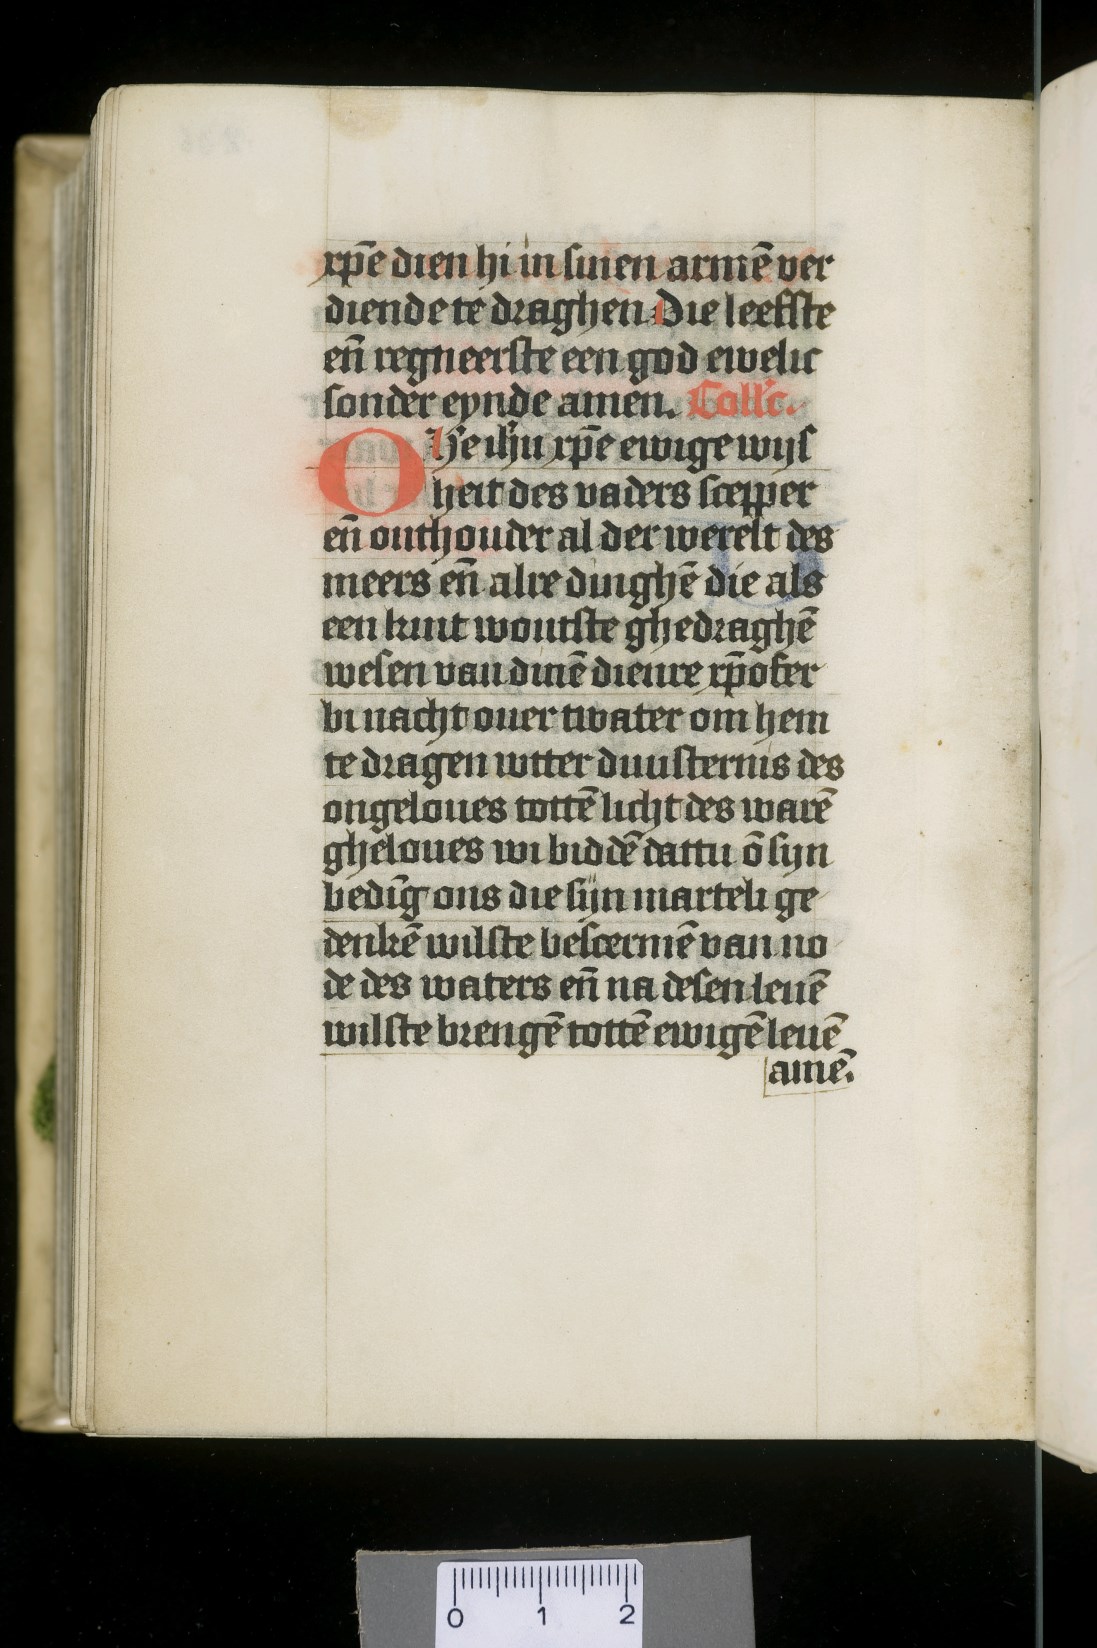 xp̄e dien hi in sinen armē ver
diende te draghen Die leefste
en̄ regneerste een god ewelic
sonder eynde amen. Coll'c.
O H'e ih'u xp̄e ewige wijs
heit des vaders scepper
en̄ onthouder al der werelt des
meers en̄ alre dinghē die als
een kint woutste ghedraghē
wesen van dinē dienre xp̄ofer
bi nacht ouer twater om hem
te dragen wtter duusternis des
ongeloues tottē licht des warē
gheloues wi biddē dattu ō sijn
bedīg ons die sijn marteli ge
denkē wilste bescermē van no
de des waters en̄ na desen leuē
wilste brengē tottē ewigē leuē
amē.
0 1 2